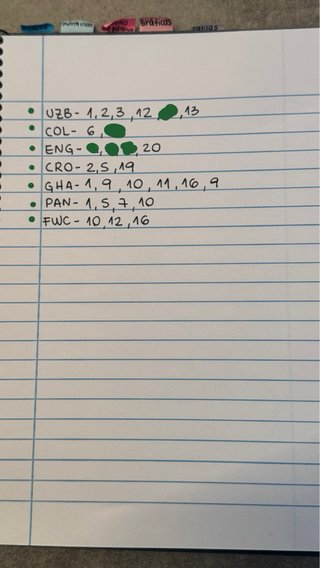 Gráficas
UZB - 1, 2, 3, 12, 13
COL - 6,
ENG - , 20
CRO - 2, 5, 19
GHA - 1, 9, 10, 11, 16, 9
PAN - 1, 5, 7, 10
FWC - 10, 12, 16